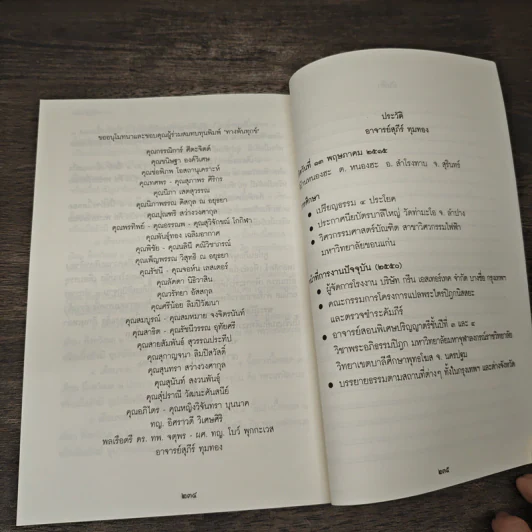 ขออนุโมทนาและขอบคุณผู้ร่วมสมทบทุนพิมพ์ "ทางพ้นทุกข์"
คุณกรรณิการ์ ศิตะจิตต์
คุณชนิษฐา องค์วิเศษ
คุณช่อทิพ โอสถานุเคราะห์
คุณทศพร - คุณสุภาพร ศิริกร
คุณนิภา เสตสุวรรณ
คุณนิภาพรรณ ดิสกุล ณ อยุธยา
คุณปุณฑริ สว่างวงศากุล
คุณพรทิพย์ - คุณอรรณพ - คุณสุวิจักขณ์ โกกิฬา
คุณพันธุ์ทอง เฉลิมอากาศ
คุณพิชัย - คุณนลินี คณิวิชาภรณ์
คุณเพ็ญพรรณ วิสุทธิ ณ อยุธยา
คุณรัชนี - คุณจอห์น เลสเตอร์
คุณลัคดา นิธิวาสิน
คุณวรัทยา อัสสกุล
คุณศรีน้อย ลิมปิวัฒนา
คุณสมบูรณ์ - คุณสมหมาย จงจิตรนันท์
คุณสาธิต - คุณรัชนีวรรณ อุทัยศรี
คุณสายสัมพันธ์ สุวรรณประทีป
คุณสุกาญจนา ลิมปิสวัสดิ์
คุณสุนทรา สว่างวงศากุล
คุณสุนันท์ สงวนพันธุ์
คุณสุปราณี วัฒนะคันสนีย์
คุณอภิไตร - คุณหญิงวิจันทรา บุนนาค
ทญ. อิศราวดี วิเศษศิริ
พลเรือตรี ดร. ทพ. จตุพร - ผศ. ทญ. โบว์ พุกกะเวส
อาจารย์สุภีร์ ทุมทอง
๒๓๔
ประวัติ
อาจารย์สุภีร์ ทุมทอง
วันที่ ๑๓ พฤษภาคม ๒๕๑๕
หนองฮะ ต. หนองฮะ อ. สำโรงทาบ จ. สุรินทร์
ศึกษา
● เปรียญธรรม ๔ ประโยค
● ประกาศนียบัตรบาลีใหญ่ วัดท่ามะโอ จ. ลำปาง
● วิศวกรรมศาสตร์บัณฑิต สาขาวิศวกรรมไฟฟ้า
มหาวิทยาลัยขอนแก่น
หน้าที่การงานปัจจุบัน (๒๕๕๐)
● ผู้จัดการโรงงาน บริษัท กรีน เอสเทอร์เทค จำกัด บางซื่อ กรุงเทพฯ
● คณะกรรมการโครงการแปลพระไตรปิฎกนิสสยะ
และตรวจชำระคัมภีร์
● อาจารย์สอนพิเศษปริญญาตรีชั้นปีที่ ๓ และ ๔
วิชาพระอภิธรรมปิฎก มหาวิทยาลัยมหาจุฬาลงกรณ์ราชวิทยาลัย
วิทยาเขตบาลีศึกษาพุทธโฆส จ. นครปฐม
● บรรยายธรรมตามสถานที่ต่างๆ ทั้งในกรุงเทพฯ และต่างจังหวัด
๒๓๕